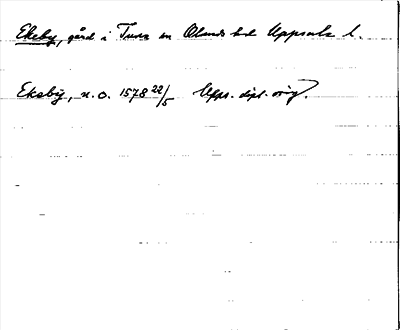 Ekeby, gård i Tuna sn Olands hd Uppsala l.
Ekeby, n. o. 1578 22/5 Upps. dipl. orig.